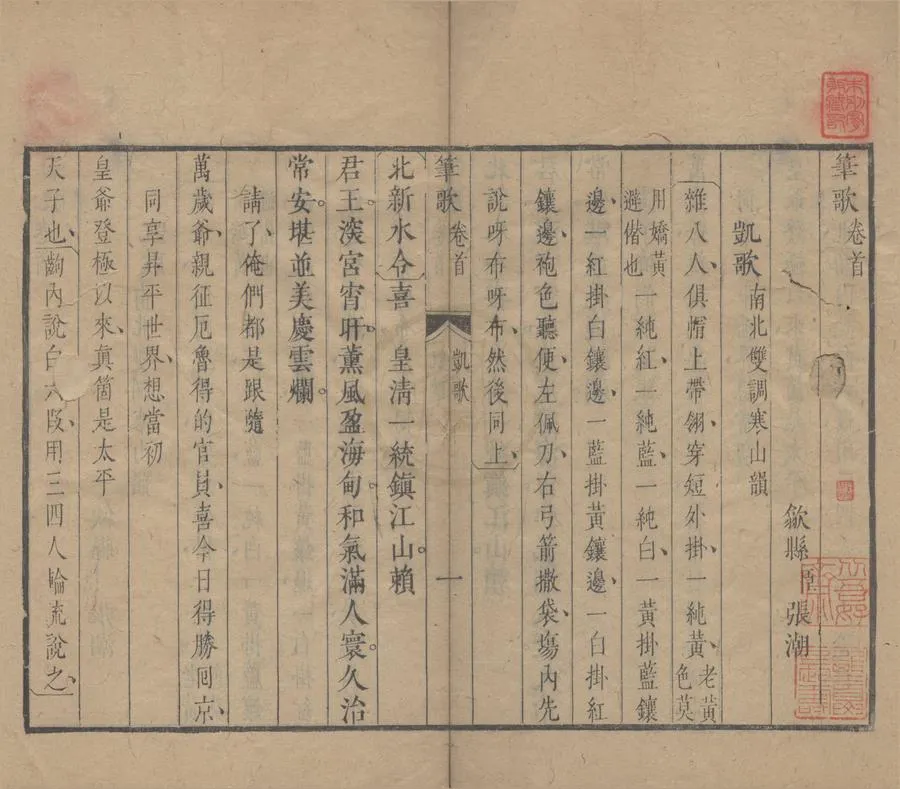 筆歌 卷首
凱歌 南北雙調寒山韻
歙縣 臣 張潮
雜八人俱帽上帶翎穿短外掛一純黃 老黃色莫
用嬌黃避偕也 一純紅一純藍一純白一黃掛藍鑲
邊一紅掛白鑲邊一藍掛黃鑲邊一白掛紅
鑲邊袍色聽便左佩刀右弓箭撒袋塲內先
說呀布呀布然後同上
筆歌 卷首 凱歌 一
北新水令 喜 皇淸一統鎮江山賴
君王深宮宵旰薰風盈海甸和氣滿人寰久治
常安堪並美慶雲爛
請了俺們都是跟隨
萬歲爺親征厄魯得的官員喜今日得勝回京
同享昇平世界想當初
皇爺登極以來真箇是太平
天子也 齣內說白六段用三四人輪流說之